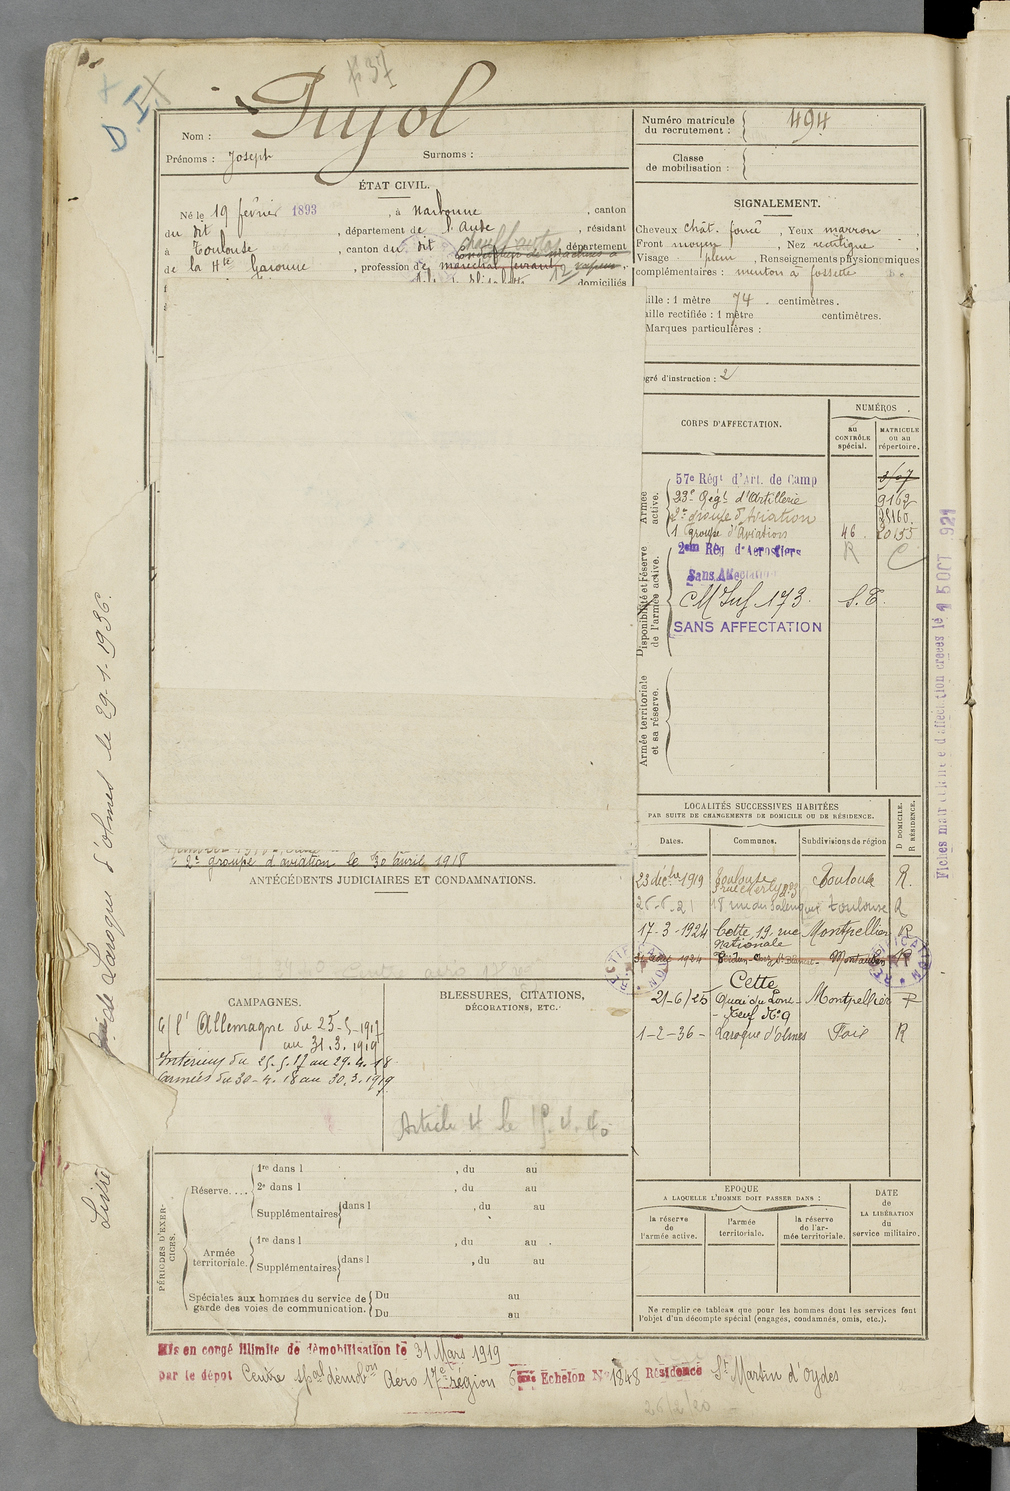 Pujol
Nom :
Prénoms : Joseph Surnoms :
ÉTAT CIVIL.
Né le 19 février 1893, à Narbonne, canton
du dit, département de l'Aude, résidant
à Toulouse, canton du dit, département
de la Hte Garonne, profession de maréchal ferrant
domiciliés
Numéro matricule du recrutement : 494
Classe de mobilisation :
SIGNALEMENT.
Cheveux chât. foncé, Yeux marron
Front moyen, Nez rectiligne
Visage plein, Renseignements physionomiques
complémentaires : menton à fossette
aille : 1 mètre 74 centimètres.
aille rectifiée : 1 mètre centimètres.
Marques particulières :
egré d'instruction : 2
CORPS D'AFFECTATION.
NUMÉROS
au CONTRÔLE spécial.
MATRICULE ou au répertoire.
Armée active.
57e Régt d'Art. de Camp
23e Régt d'Artillerie 9162
2e groupe d'Aviation
1 groupe d'Aviation 46 20155
Disponibilité et réserve de l'armée active.
2em Rég d'Aerostiers R C
Sans Affectation
CM Inf 173. S.E.
SANS AFFECTATION
Armée territoriale et sa réserve.
2e groupe d'aviation le 30 avril 1918
ANTÉCÉDENTS JUDICIAIRES ET CONDAMNATIONS.
LOCALITÉS SUCCESSIVES HABITÉES
PAR SUITE DE CHANGEMENTS DE DOMICILE OU DE RÉSIDENCE.
D DOMICILE. R RÉSIDENCE.
Dates. Communes. Subdivisions de région
23 décbre 1919 Toulouse Toulouse R.
Toulouse R
17-3-1924 Cette, 19, rue Nationale Montpellier R
1924 Montauban R
21-6/25 Cette Quai du Pont Neuf No 9 Montpellier R
1-2-36 - Laroque d'olmes Foix R
CAMPAGNES.
c/ l'Allemagne du 25-5-1917
au 31.3.1919
Intérieur du 25.5.17 au 29.4.18
Armées du 30-4.18 au 30.3.1919
BLESSURES, CITATIONS, DÉCORATIONS, ETC.
Article 4 le
PÉRIODES D'EXERCICES.
Réserve....
1re dans l , du au
2e dans l , du au
Supplémentaires dans l , du au
Armée territoriale.
1re dans l , du au
Supplémentaires dans l , du au
Spéciales aux hommes du service de garde des voies de communication.
Du au
Du au
EPOQUE
A LAQUELLE L'HOMME DOIT PASSER DANS :
la réserve de l'armée active.
l'armée territoriale.
la réserve de l'armée territoriale.
DATE de LA LIBÉRATION du service militaire.
Ne remplir ce tableau que pour les hommes dont les services font
l'objet d'un décompte spécial (engagés, condamnés, omis, etc.).
Mis en congé illimité de démobilisation le 31 Mars 1919
par le dépot Centre spal démobon Aéro 17e région 6ème Echelon No 1848 Résidence St Martin d'Oydes
de Laroque d'olmes le 29-1-1936.
Livret
Fiches matricule et d'affectation créées le 15 OCT 1921